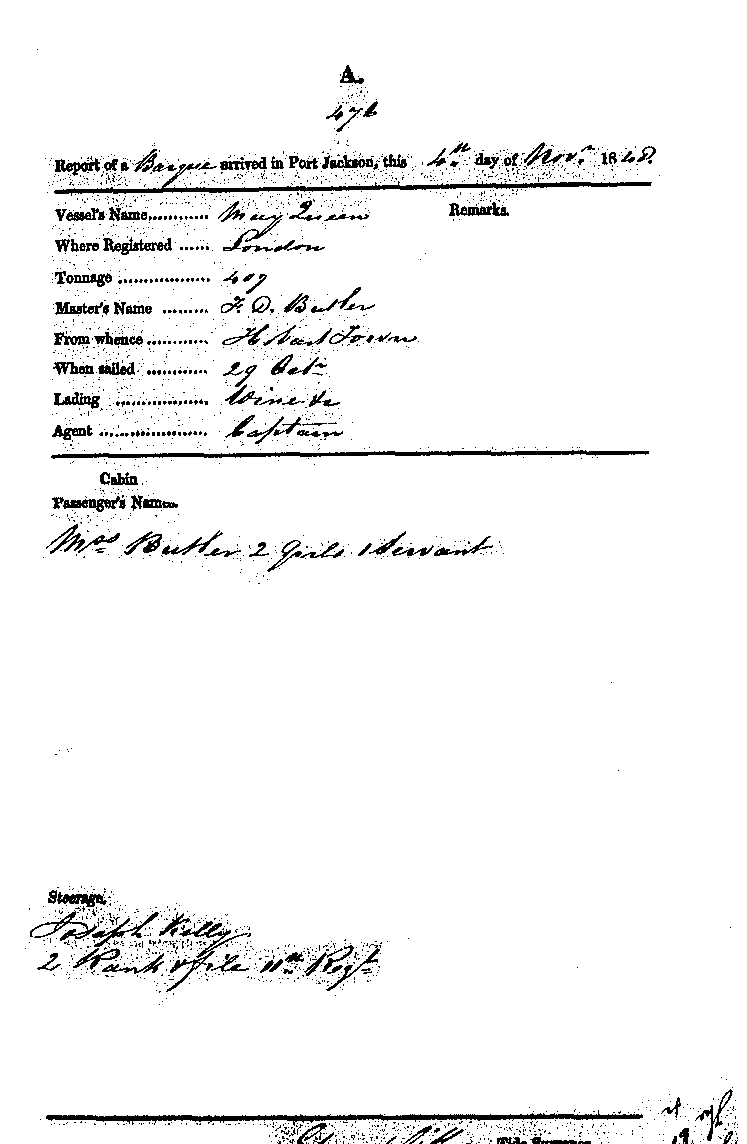 A.
476
Report of a Barque arrived in Port Jackson, this 4th day of Novr. 1848.
Vessel's Name............ Mary Queen
Remarks.
Where Registered ...... London
Tonnage .................. 409
Master's Name ......... F. D. Butler
From whence............ Hobart Town
When sailed ............ 29 Octr
Lading .................. Wine &c
Agent ..................... Captain
Cabin
Passenger's Names.
Mrs Butler 2 girls 1 Servant
Steerage.
Joseph Kelly
2 Rank & file 11th Regt
Tide Surveyor